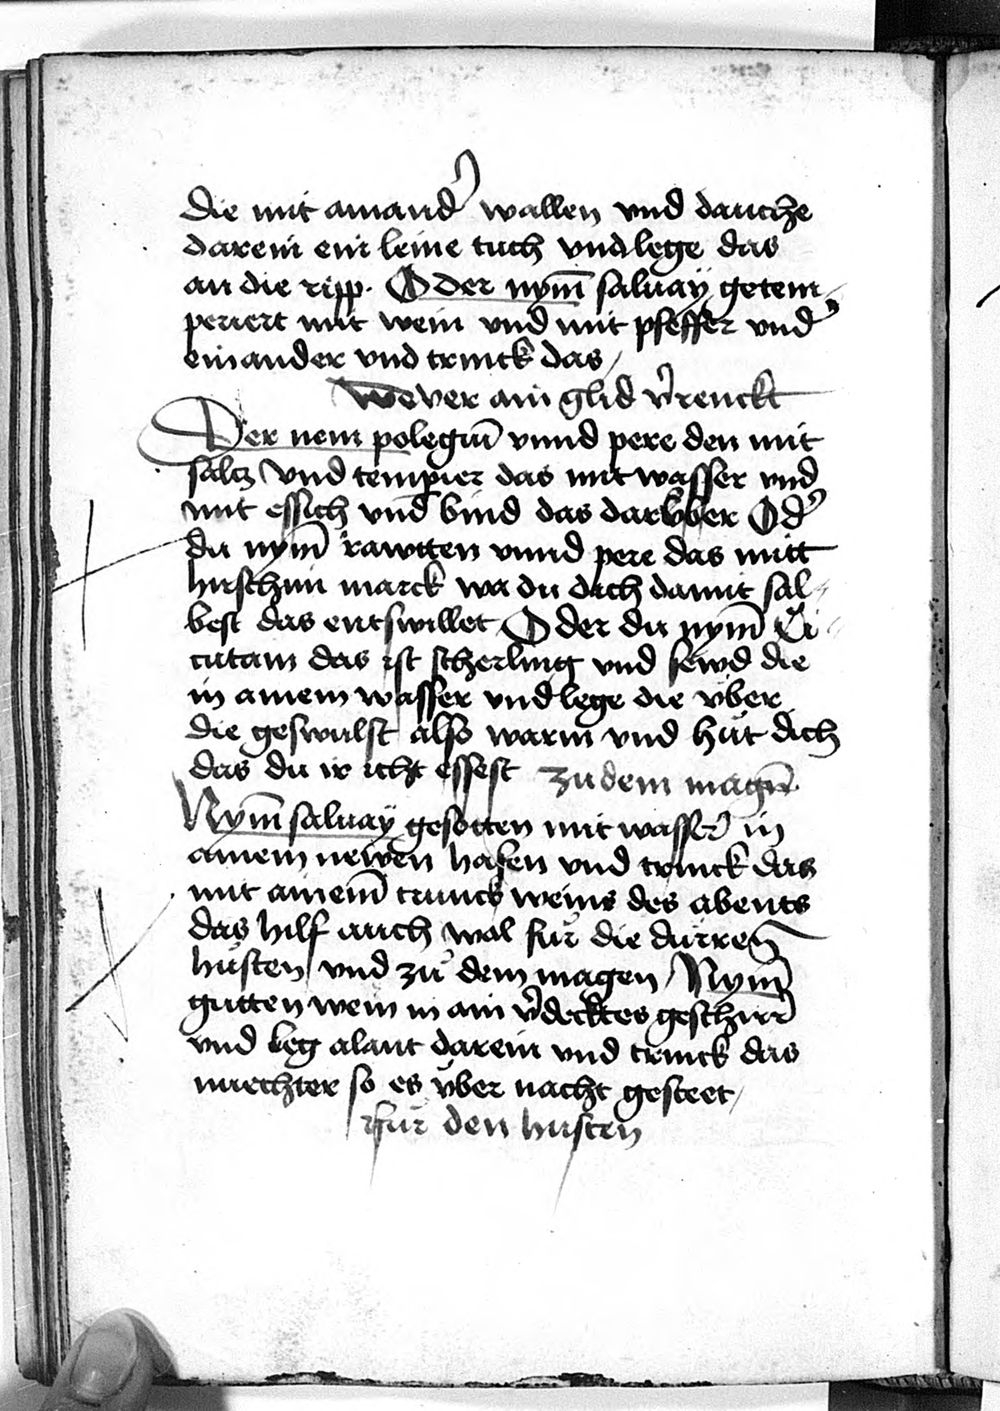 die mit amand' wallen vnd dauche
darein ein leine tuch vnd lege das
an die ripp. Oder nym̄ saluay getem„
periert mit wein vnd mit pfeffer vnd'
einander vnd trinck das /
Wever ain glid v'renckt
Der nem polegiū vnnd pere den mit
saltz vnd tempier das mit wasser vnd
mit essich vnd bind das darvber Od'
du nym̄ rawtten vnnd pere das mitt
hirschini marck wa du dich damit sal„
best das entswillet Oder du nym̄ Ci„
cutam das ist scherling vnd sewd die
in ainem wasser vnd lege die vber
die geswulst also warm vnd hüt dich
das du ir icht essest zu dem magē
Nym̄ saluay gesotten mit wasser in
ainem newen hafen vnd trinck das
mit ainem̄ trunck weins des abents
das hilf auch wol für die dürren
husten vnd zů dem magen / Nym̄
gutten wein in ain v'decktes geschirr
vnd leg alant darein vnd trinck das
nuechter so es vber nacht gesteet /
für den husten